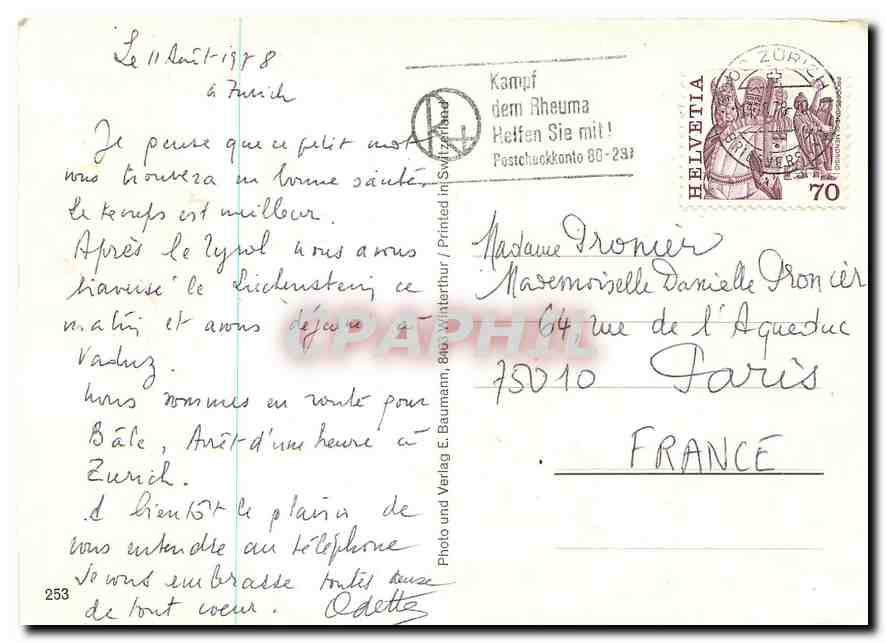 Le 11 Août 1978
à Zurich
Je pense que ce petit mot
vous trouvera en bonne santé,
Le temps est meilleur.
Après le Tyrol nous avons
traversé le Liechenstein ce
matin et avons déjeuné à
Vaduz.
Nous sommes en route pour
Bâle, Arrêt d'une heure à
Zurich.
A bientôt le plaisir de
vous entendre au téléphone
Je vous embrasse toutes deux
de tout coeur. Odette
253
Photo und Verlag E. Baumann, 8403 Winterthur / Printed in Switzerland
Kampf
dem Rheuma
Helfen Sie mit!
Postcheckkonto 80-237
ZÜRICH
BRIEFVERSAND
HELVETIA
70
Madame Pronier
Mademoiselle Danielle Pronier
64, rue de l'Aqueduc
75010 Paris
FRANCE
CPAPHIL